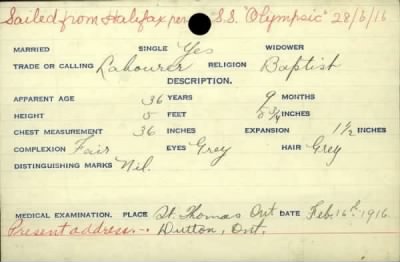 Sailed from Halifax per S.S. "Olympsic" 28/6/16
MARRIED SINGLE Yes WIDOWER
TRADE OR CALLING Labourer RELIGION Baptist
DESCRIPTION.
APPARENT AGE 36 YEARS 9 MONTHS
HEIGHT 5 FEET 0 3/4 INCHES
CHEST MEASUREMENT 36 INCHES EXPANSION 1 1/2 INCHES
COMPLEXION Fair EYES Grey HAIR Grey
DISTINGUISHING MARKS Nil.
MEDICAL EXAMINATION. PLACE St. Thomas Ont DATE Feb. 16th. 1916.
Present address.-. Dutton, Ont.